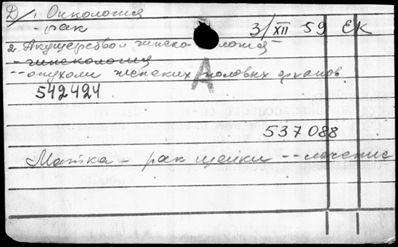 Д/1. Онкология
- рак 3/XII 59 ЕК
2. Акушерство и гинекология
- гинекология
-- опухоли женских половых органов
А
542424
537088
Матка - рак шейки -- лечение